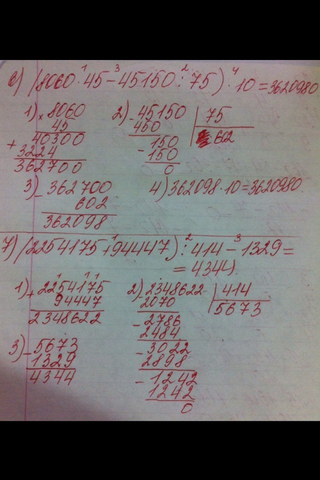 е) (8060 · 45 – 45150 : 75) · 10 = 3620980
1) × 8060
45
40300
+ 3224
362700
2) – 45150 | 75
450
– 150
150
0
3) – 362700
602
362098
4) 362098 · 10 = 3620980
(2254175 + 94447) : 414 – 1329 =
= 4344.
1) + 2254175
94447
2348622
2) 2348622 | 414
2070 5673
– 2786
2484
– 3022
2898
– 1242
1242
0
3) – 5673
1329
4344